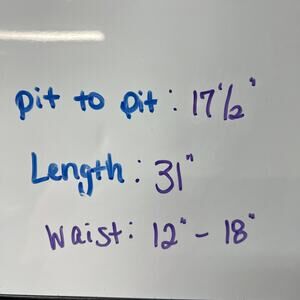 pit to pit: 17 1/2"
Length: 31"
Waist: 12" - 18"